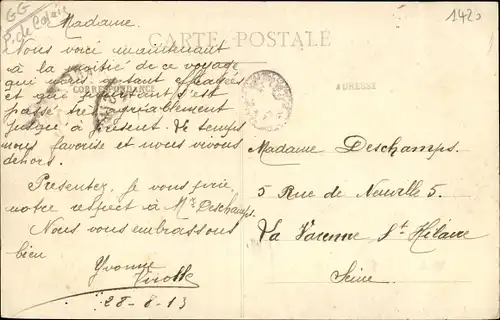 GG
P. de Calais
1420
CARTE POSTALE
CORRESPONDANCE
ADRESSE
Madame.
Nous voici maintenant
à la moitié de ce voyage
qui nous a tant
et que pourtant s'est
passé très agréablement
jusque à présent. Le temps
nous favorise et nous vivons
dehors.
Présentez, je vous prie,
notre respect à Mr Deschamps
Nous vous embrassons
bien
Yvonne
28-8-13
Madame Deschamps.
5 Rue de Neuville 5.
La Varenne St Hilaire
Seine.